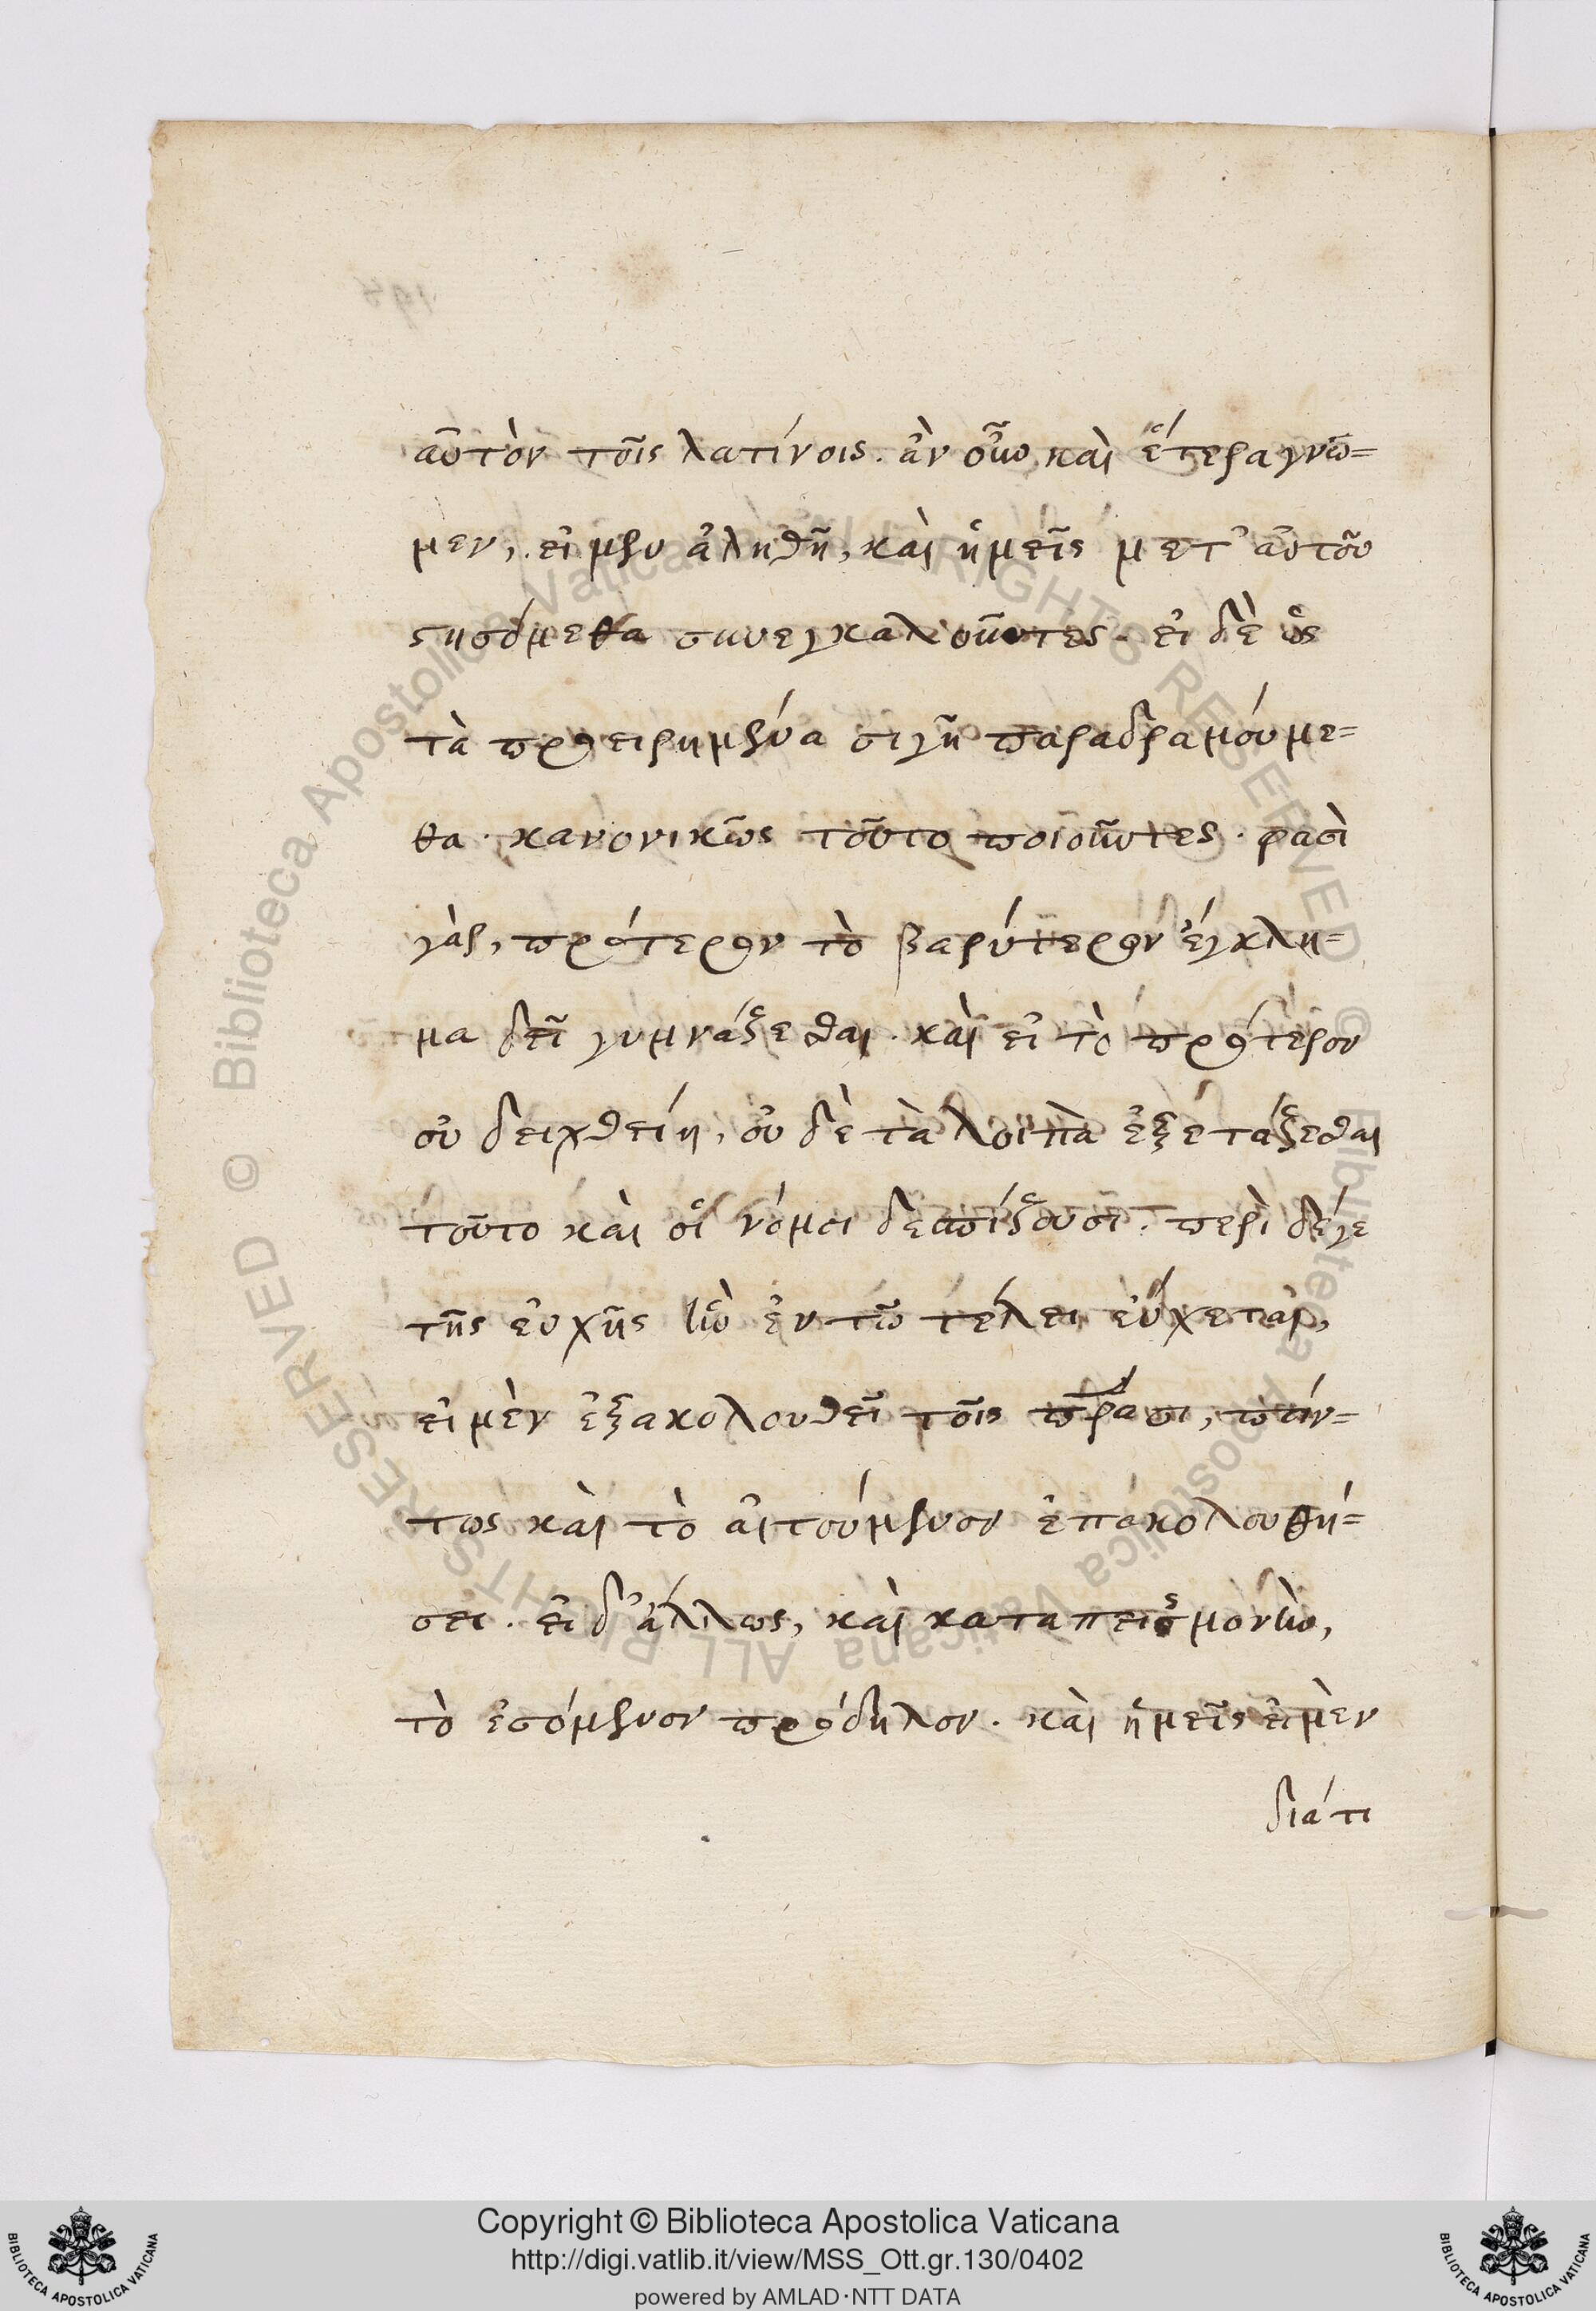 αὐτὸν τοῖς λατίνοις. ἂν οὖν καὶ ἕτερα γνῶ=
μεν, εἰ μὲν ἀληθῆ, καὶ ἡμεῖς μετ' αὐτοῦ
στησόμεθα συνεγκαλοῦντες. εἰ δὲ ὡς
τὰ προειρημένα σιγῇ παραδραμούμε=
θα. κανονικῶς τοῦτο ποιοῦντες. φασὶ
γὰρ, πρότερον τὸ βαρύτερον ἔγκλη=
μα δεῖ γυμνάζεσθαι. καὶ εἰ τὸ πρότερον
οὐ δειχθείη, οὐ δὲ τὰ λοιπὰ ἐξετάζεσθαι
τοῦτο καὶ οἱ νόμοι θεσπίζουσι. περὶ δέγε
τῆς εὐχῆς ἣν ἐν τῷ τέλει εὔχεται,
εἰ μὲν ἐξακολουθεῖ τοῖς πράσι, πάν=
τως καὶ τὸ αἰτούμενον ἐπακολουθή=
σει. εἰ δ' ἄλλως, καὶ καταπεισμονὴν,
τὸ ἐσόμενον πρόδηλον. καὶ ἡμεῖς εἰ μὲν
διά τι
Copyright © Biblioteca Apostolica Vaticana
http://digi.vatlib.it/view/MSS_Ott.gr.130/0402
powered by AMLAD·NTT DATA
BIBLIOTECA APOSTOLICA VATICANA
BIBLIOTECA APOSTOLICA VATICANA
© Biblioteca Apostolica Vaticana ALL RIGHTS RESERVED
© Biblioteca Apostolica Vaticana ALL RIGHTS RESERVED